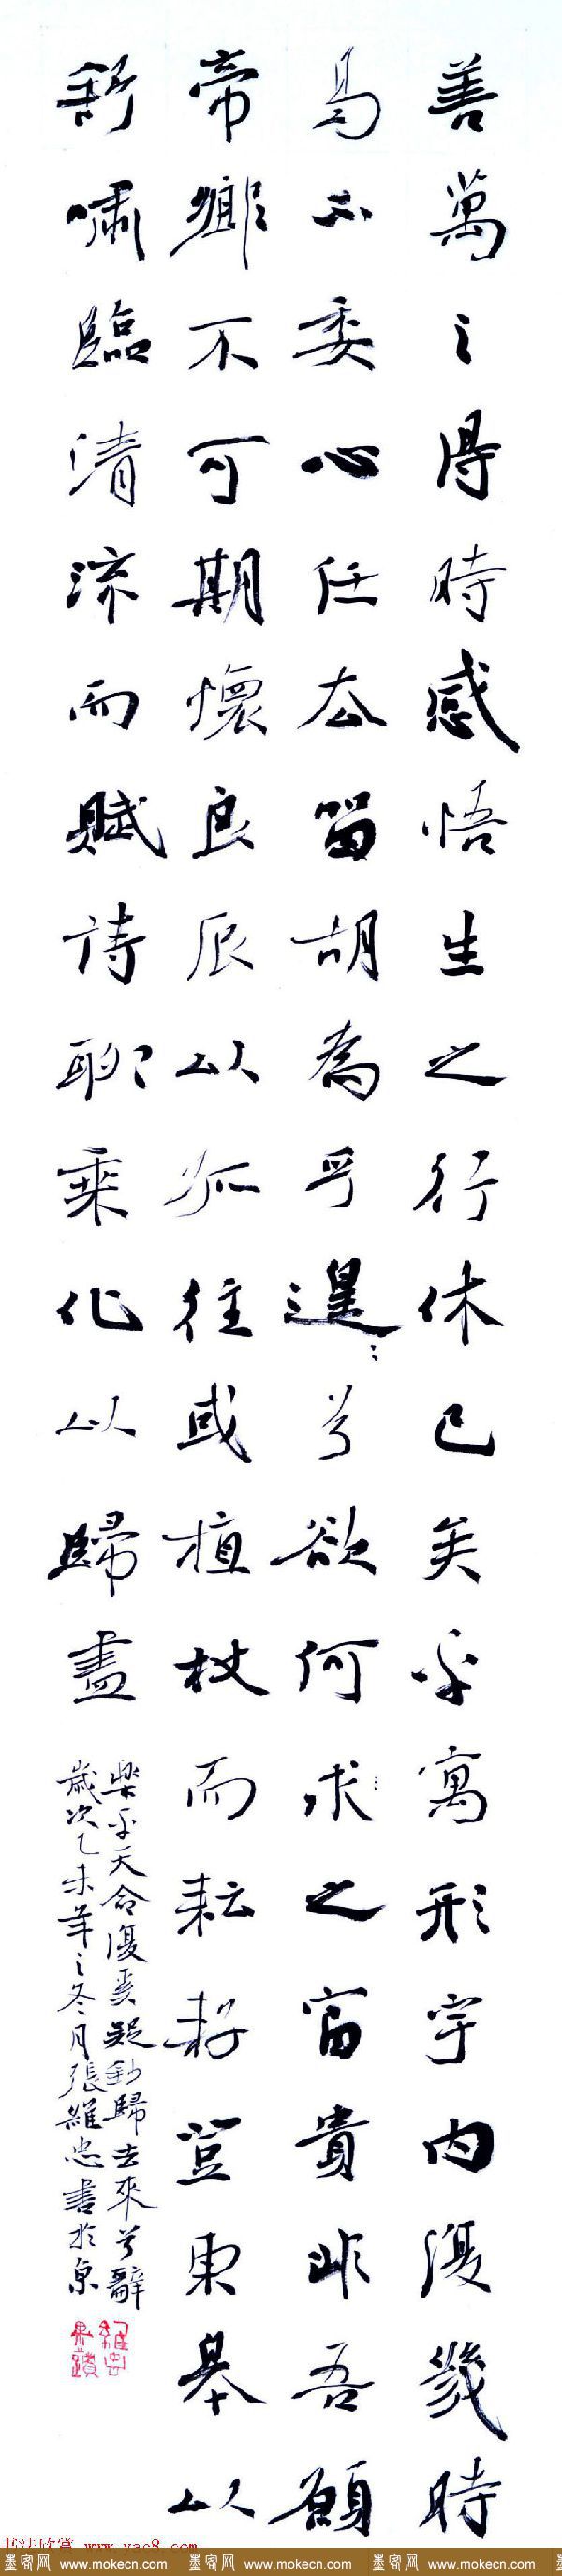 善萬之得時感悟生之行休已矣乎寓形宇内復幾時
曷不委心任去留胡為乎遑〻兮欲何求之富貴非吾願
帝鄉不可期懷良辰以孤往或植杖而耘耔登東皋以
舒嘯臨清流而賦詩聊乘化以歸盡
樂乎天命復奚疑鈔歸去來兮辭
歲次乙未年之冬月張維忠書於京
維忠墨蹟
书法欣赏 www.yac8.com
墨客网 www.mokecn.com 墨客网 www.mokecn.com 墨客网 www.mokecn.com